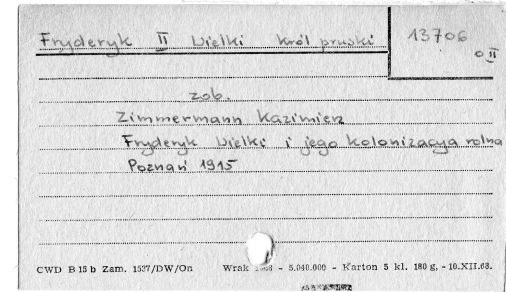 Fryderyk II Wielki król pruski
13706
O II
zob.
Zimmermann Kazimierz
Fryderyk Wielki i jego kolonizacya rolna
Poznań 1915
CWD B 15 b Zam. 1537/DW/On Wrak - 5.040.000 - Karton 5 kl. 180 g, - 10.XII.68.